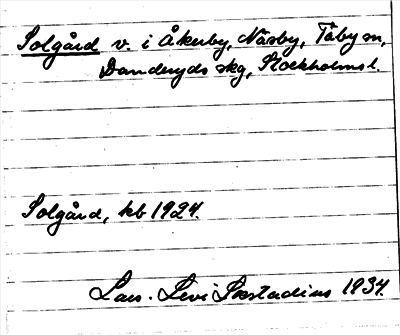 Solgård v. i Åkerby, Näsby, Täby sn,
Danderyds skg, Stockholms l.
Solgård, kb 1924.
Lars-Levi Læstadius 1934.